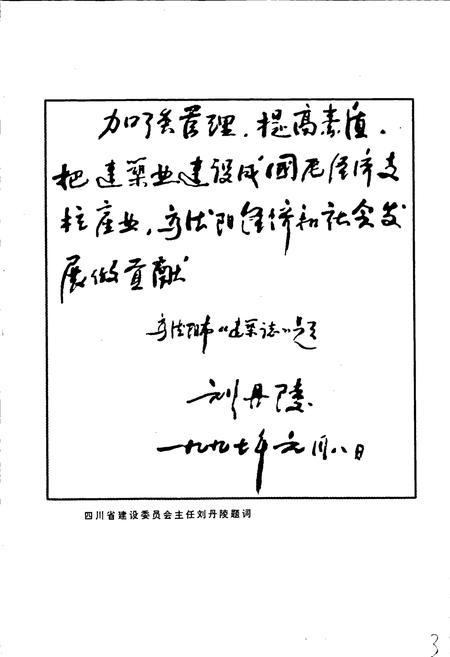 加强管理,提高素质,
把建築业建设成国民经济支
柱産业,为德阳经济和社会发
展做貢献
为德阳市《建築誌》题
刘丹陵
一九九七年元月八日
四川省建设委员会主任刘丹陵题词
3